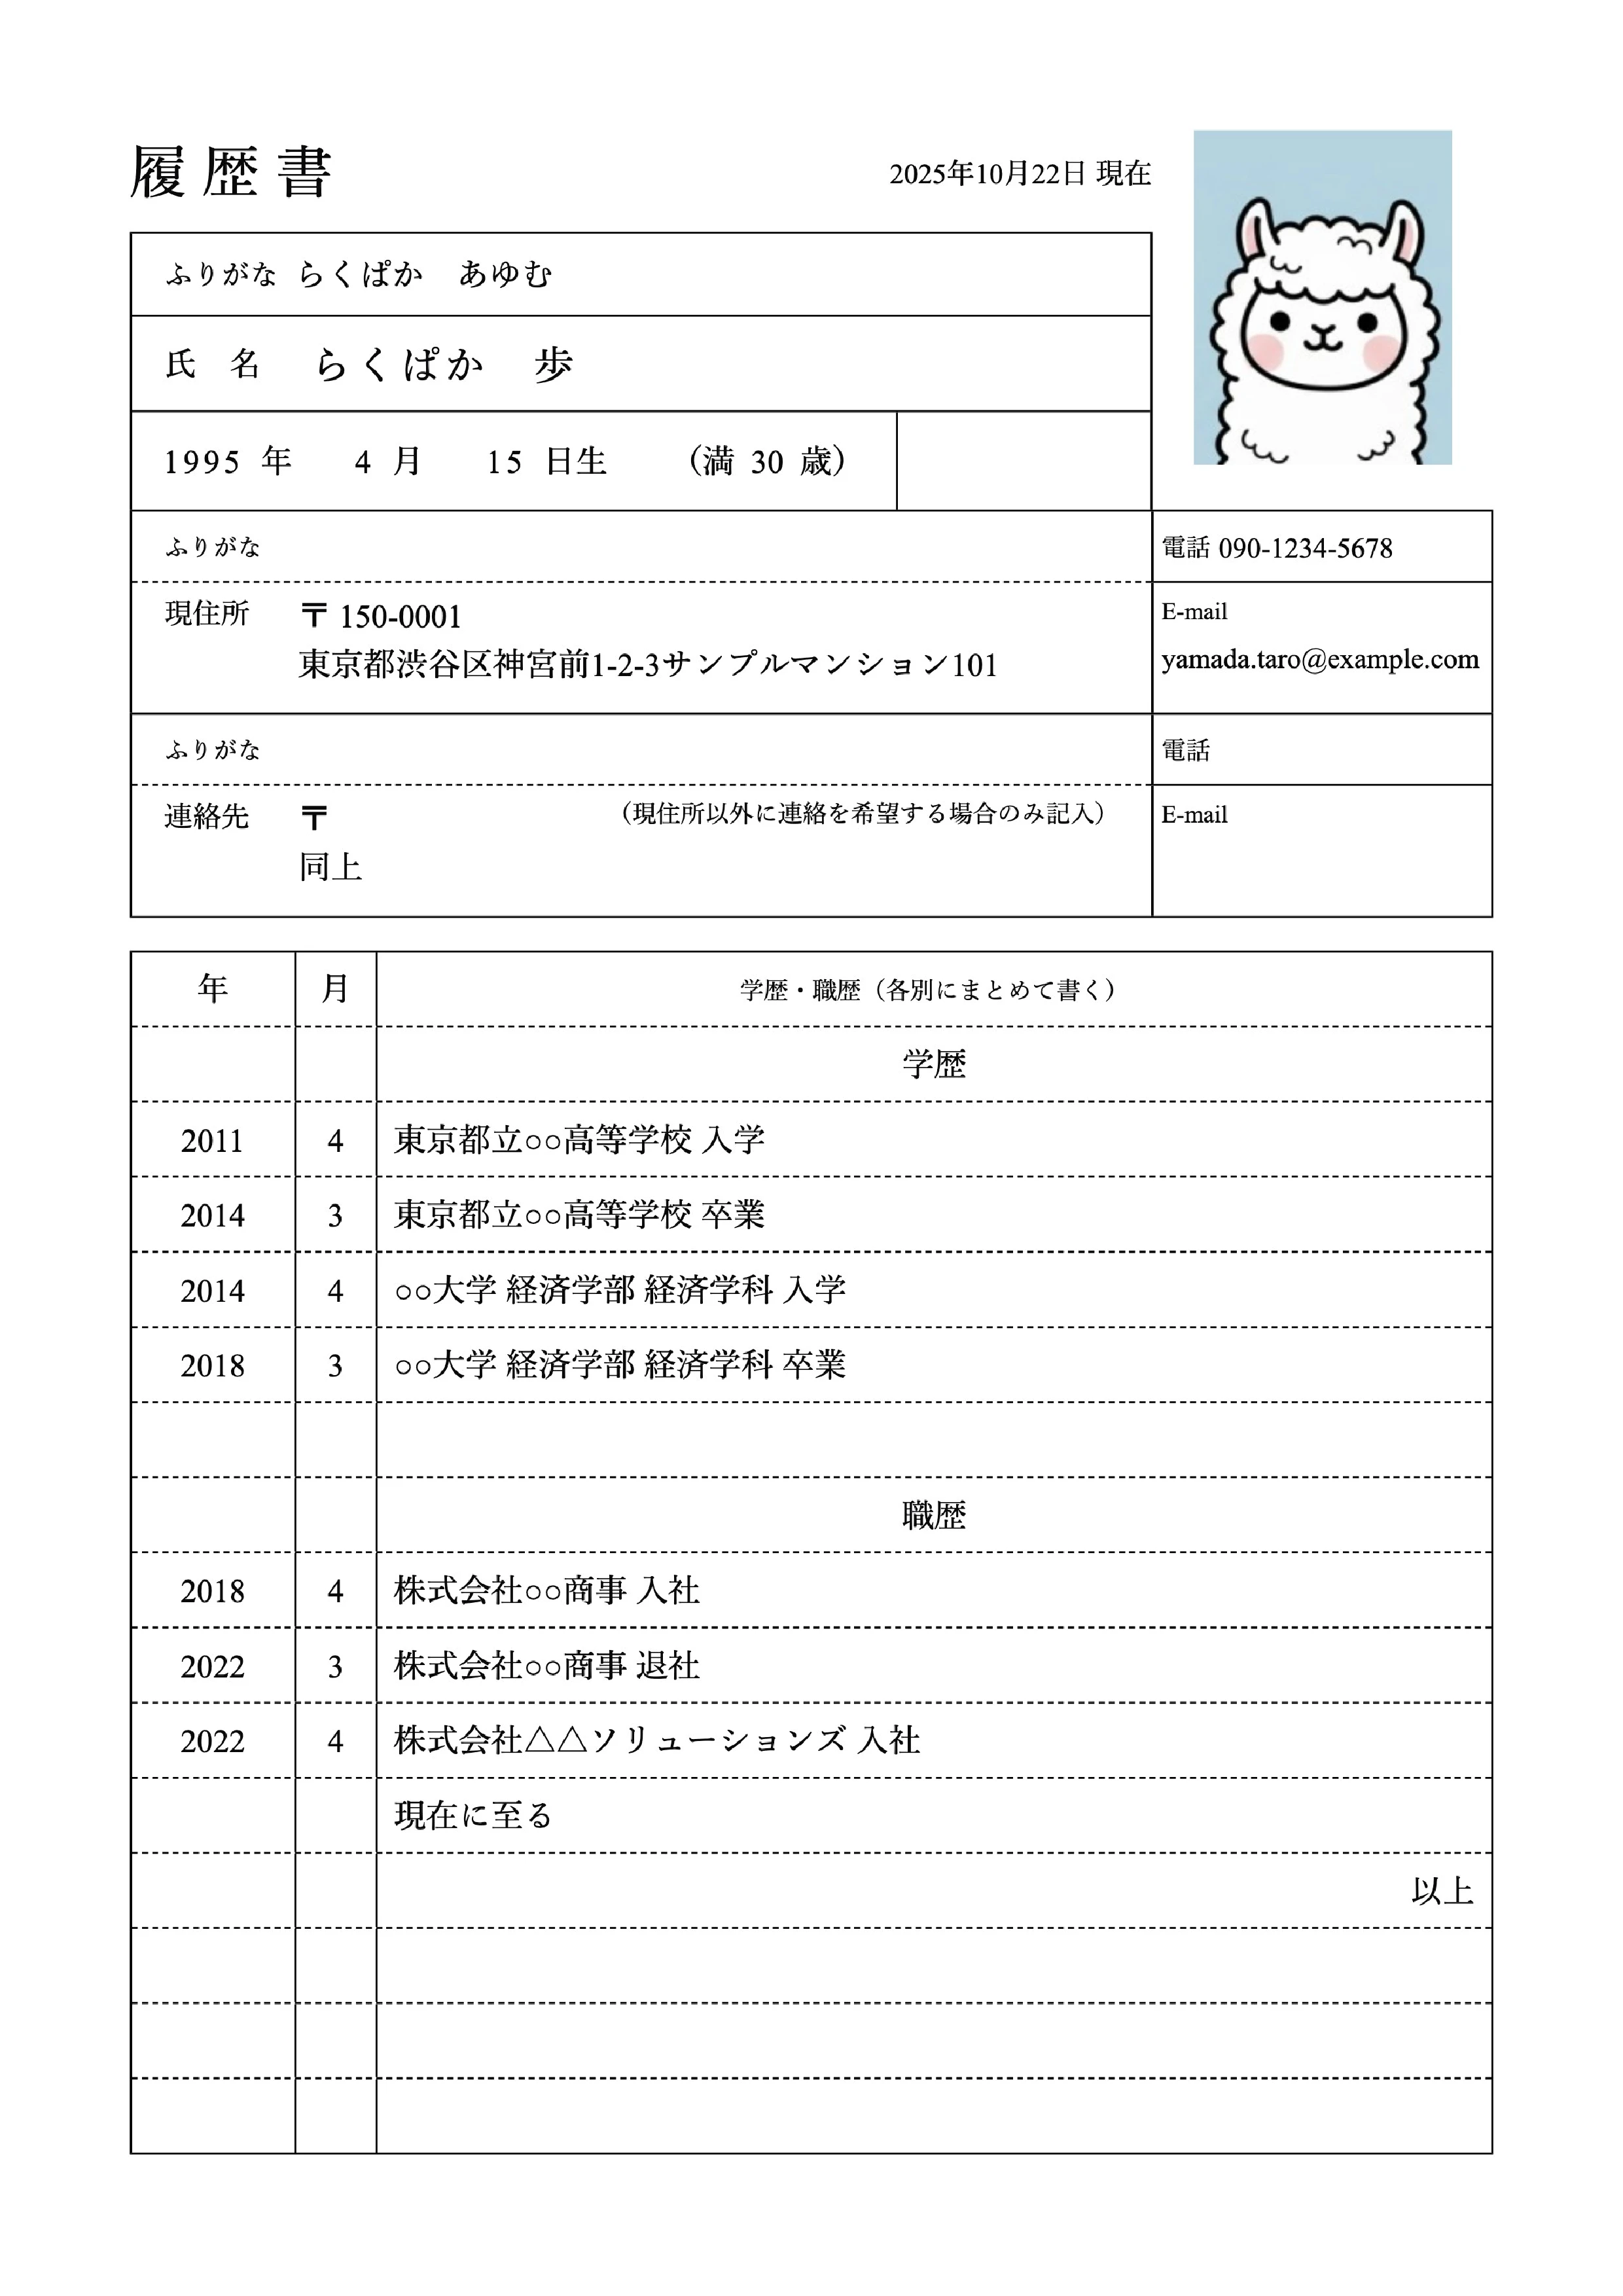 履歴書
2025年10月22日 現在
ふりがな らくぱか　あゆむ
氏　名　らくぱか　歩
1995 年　4 月　15 日生　（満 30 歳）
ふりがな
電話 090-1234-5678
現住所　〒 150-0001
東京都渋谷区神宮前1-2-3サンプルマンション101
E-mail
yamada.taro@example.com
ふりがな
電話
連絡先　〒　（現住所以外に連絡を希望する場合のみ記入）
同上
E-mail
年　月　学歴・職歴（各別にまとめて書く）
学歴
2011　4　東京都立○○高等学校 入学
2014　3　東京都立○○高等学校 卒業
2014　4　○○大学 経済学部 経済学科 入学
2018　3　○○大学 経済学部 経済学科 卒業
職歴
2018　4　株式会社○○商事 入社
2022　3　株式会社○○商事 退社
2022　4　株式会社△△ソリューションズ 入社
現在に至る
以上